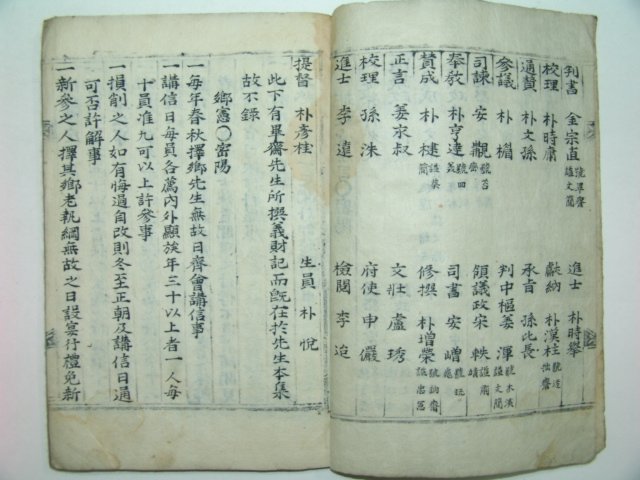 判書 金宗直 號畢齋 諡文簡 進士 朴時擧
校理 朴時庸 獻納 朴漢柱 號迂拙齋
通贊 朴文孫 承旨 孫比長
參議 朴楣 判中樞 姜渾 號木溪 諡文簡
司諫 安覯 號苔齋 領議政 宋軼 諡肅靖
擧敎 朴亨達 號四義 司書 安嶒 號玩龜
贊成 朴楗 諡恭簡 修撰 朴增榮 號訥齋 諡忠
正言 姜求叔 文壯 盧琇
校理 孫洙 府使 申儼
進士 李遠 檢閱 李迨
提督 朴彦柱 生員 朴悅
此下有畢齋先生所撰義財記而旣在於先生本集
故不錄
鄕憲〇密陽
一每年春秋擇鄕先生無故日齊會講信事
一講信日每員各薦內外顯族年三十以上者一人每
十員准九可以上許參事
一損削之人如有悔過自改則冬至正朝及講信日通
可否許解事
一新參之人擇其鄕老執綱無故之日設宴行禮免新